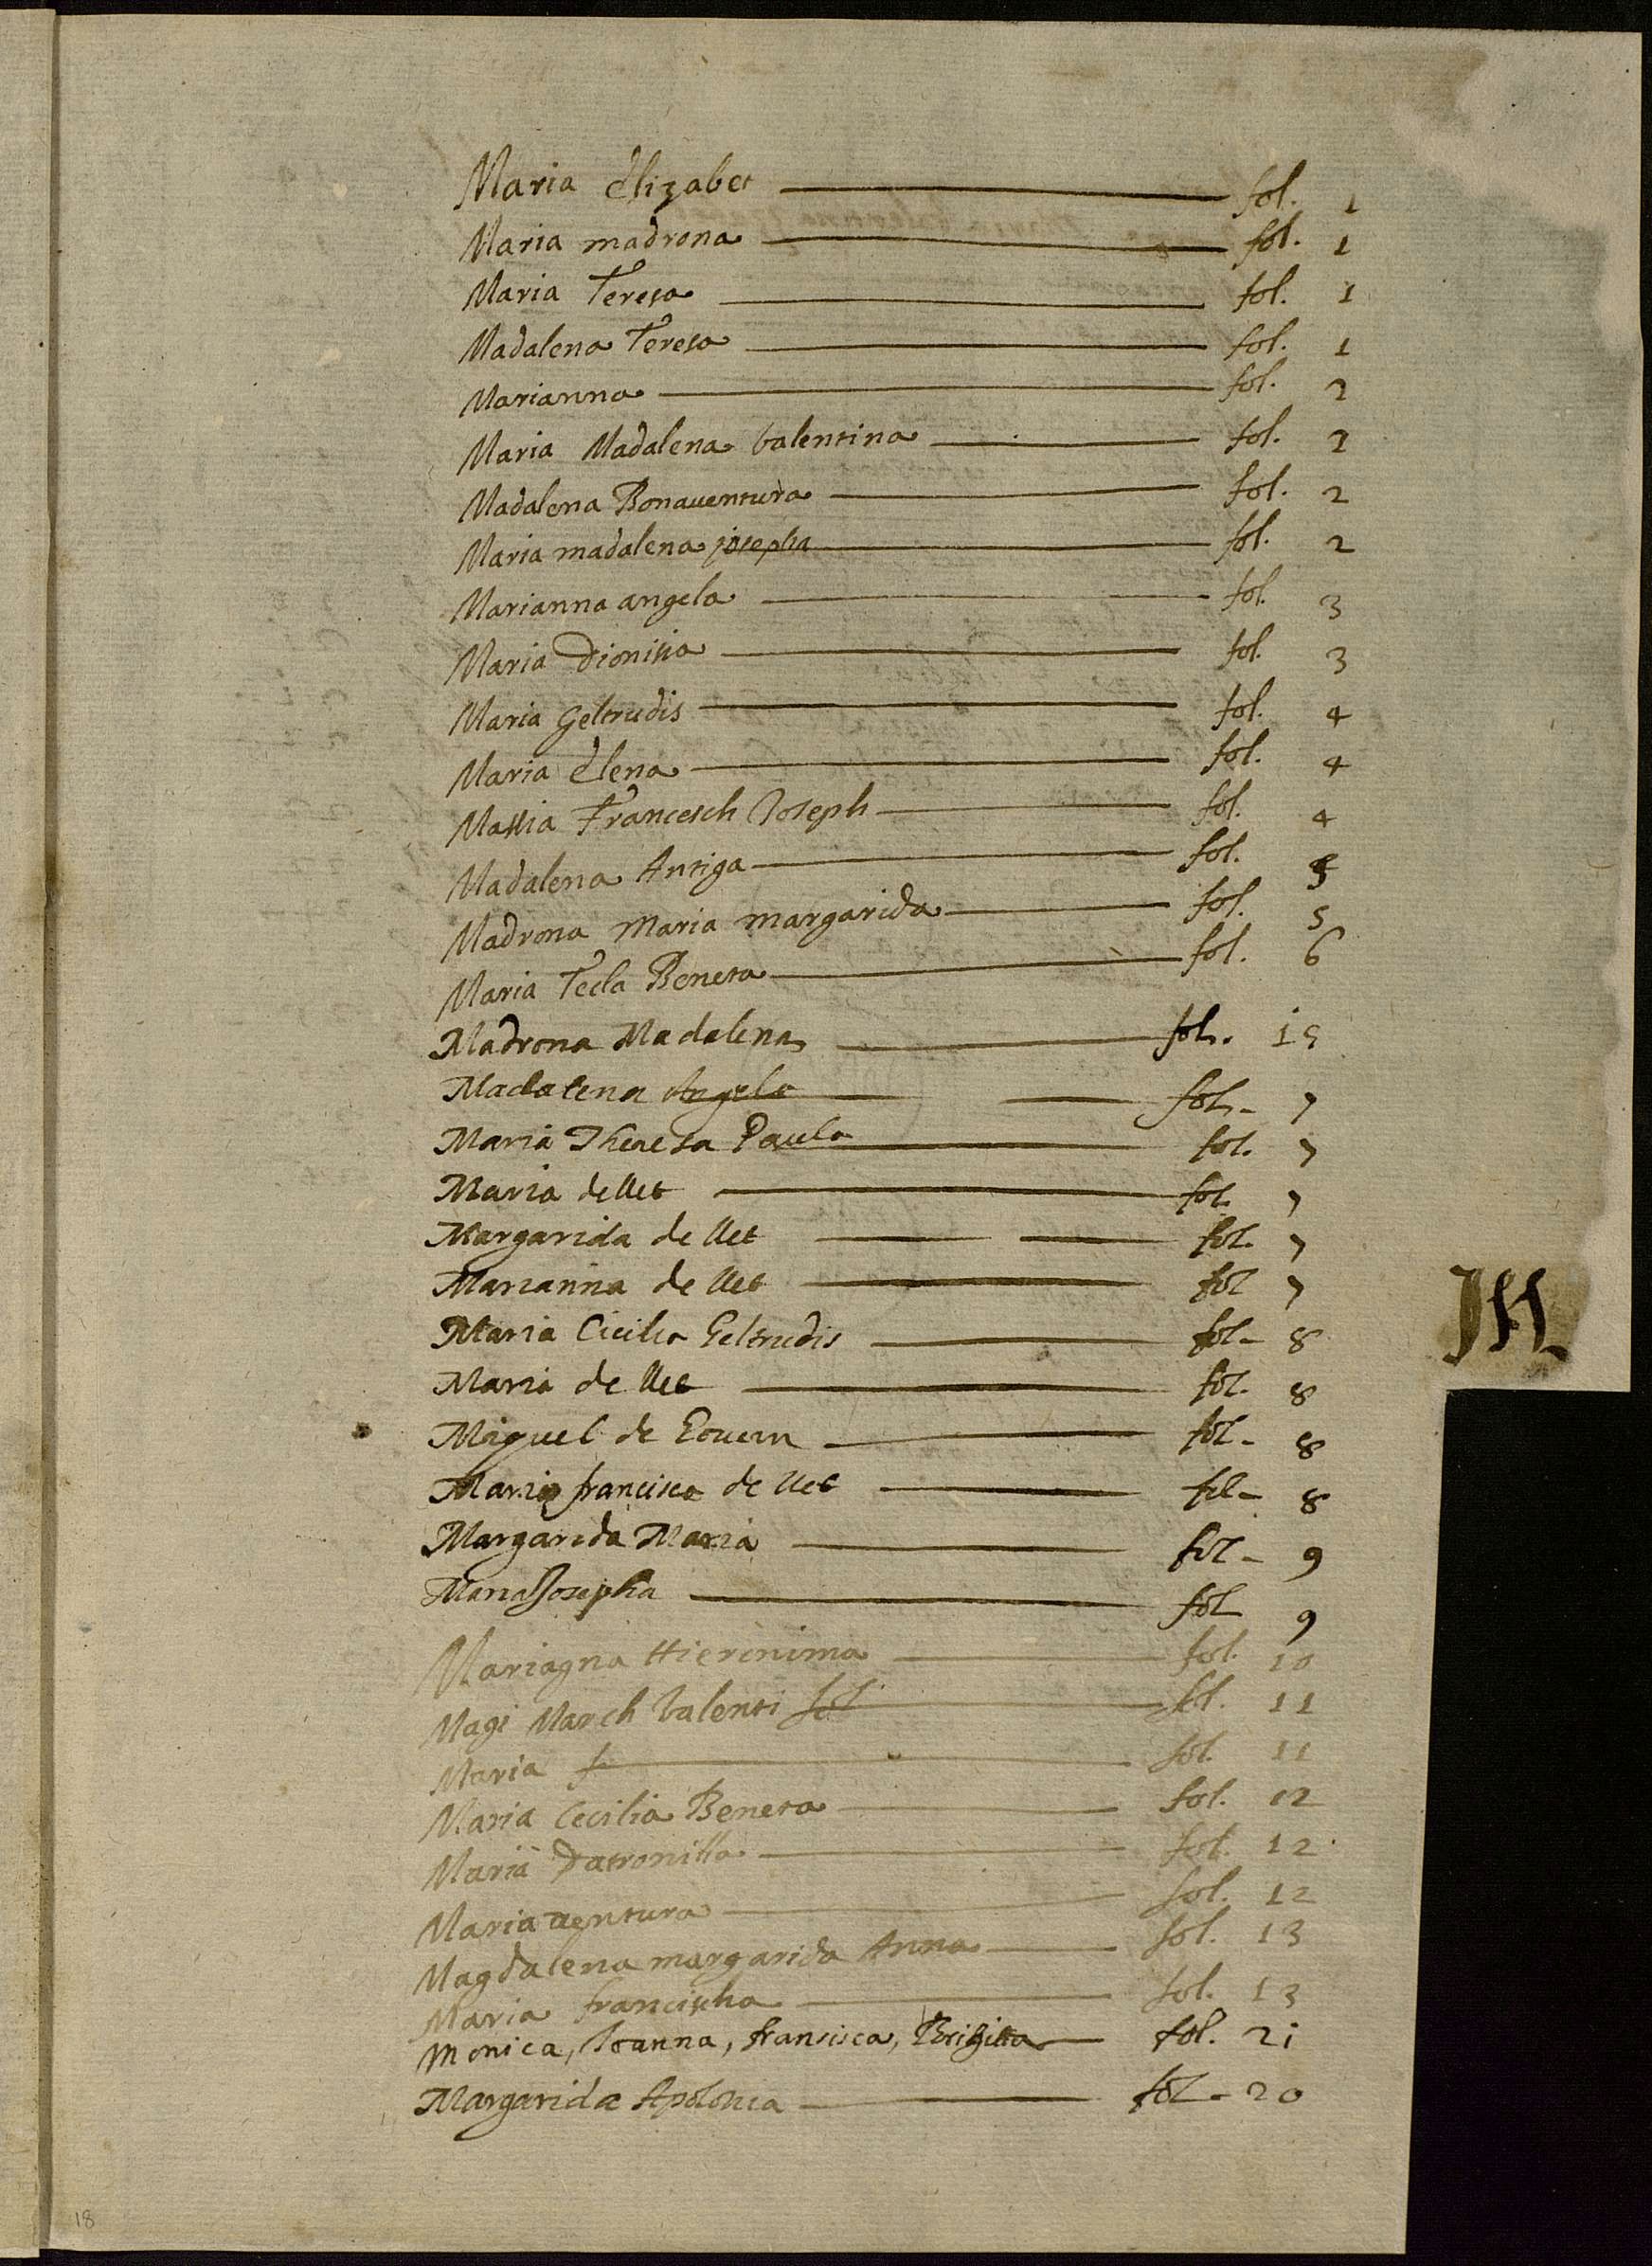 Maria Elizabet fol. 1
Maria madrona fol. 1
Maria Teresa fol. 1
Madalena Teresa fol. 1
Marianna fol. 2
Maria Madalena Valentina fol. 2
Madalena Bonauentura fol. 2
Maria madalena josepha fol. 2
Marianna angela fol. 3
Maria Dionisia fol. 3
Maria Geltrudis fol. 4
Maria Elena fol. 4
Massia Francesch Joseph fol. 4
Madalena Antiga fol. 5
Madrona Maria margarida fol. 5
Maria Tecla Beneta fol. 6
Madrona Madalena fol. 15
Madalena Angela fol. 7
Maria Theresa Paula fol. 7
Maria de llet fol. 7
Margarida de llet fol. 7
Marianna de llet fol 7
Maria Cicilia Geltrudis fol. 8
Maria de llet fol. 8
Miquel de fol. 8
Maria francisca de llet fol. 8
Margarida Maria fol. 9
Maria Josepha fol 9
M
Mariagna Hieronima fol. 10
Magi March Valenti fol. 11
Maria fol. 11
Maria Cecilia Beneta fol. 12
Maria Patronilla fol. 12
Maria ventura fol. 12
Magdalena margarida Anna fol. 13
Maria francischa fol. 13
Monica, Joanna, fransisca, Brigitta fol. 21
Margarida Apolonia fol. 20
18